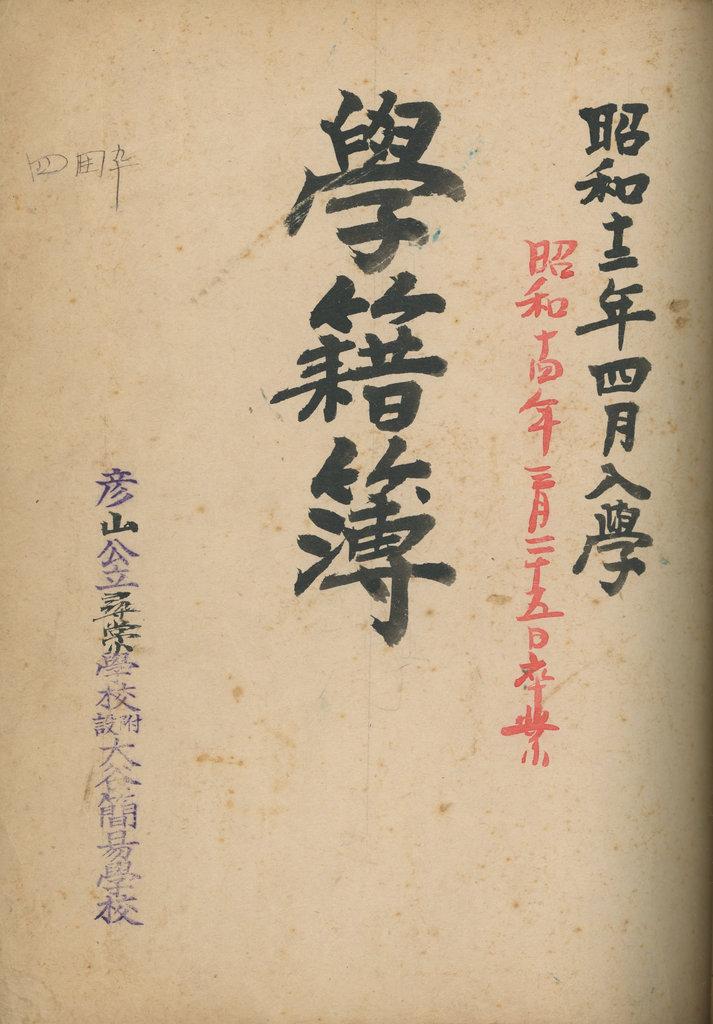 昭和十二年四月入學
昭和十四年三月二十五日卒業
學籍簿
彦山公立尋常學校附設大谷簡易學校